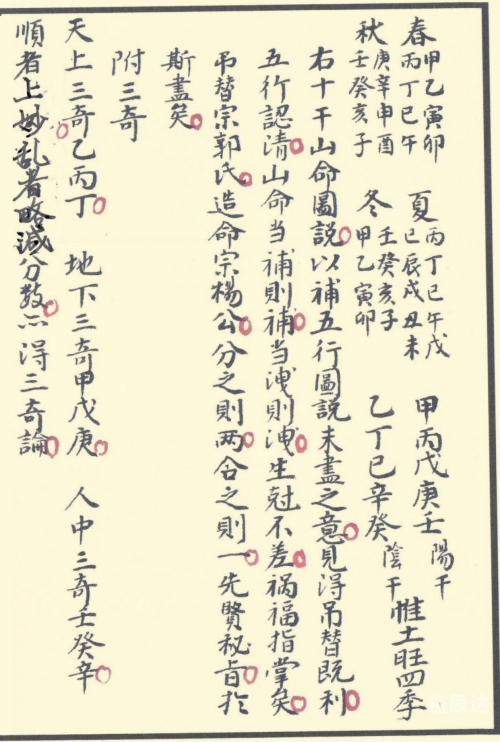 春甲乙寅卯丙丁巳午 夏丙丁巳午戊己辰戌丑未 甲丙戊庚壬陽干
秋庚辛申酉壬癸亥子 冬壬癸亥子甲乙寅卯 乙丁己辛癸陰干惟土旺四季
右十干山命圖説以補五行圖説未盡之意見得吊替既利
五行認清山命当補則補当洩則洩生尅不差禍福指掌矣
吊替宗郭氏造命宗楊公分之則两合之則一先賢秘旨於
斯盡矣
附三奇
天上三奇乙丙丁 地下三奇甲戊庚 人中三奇壬癸辛
順者上妙乱者略減分数亦得三奇論